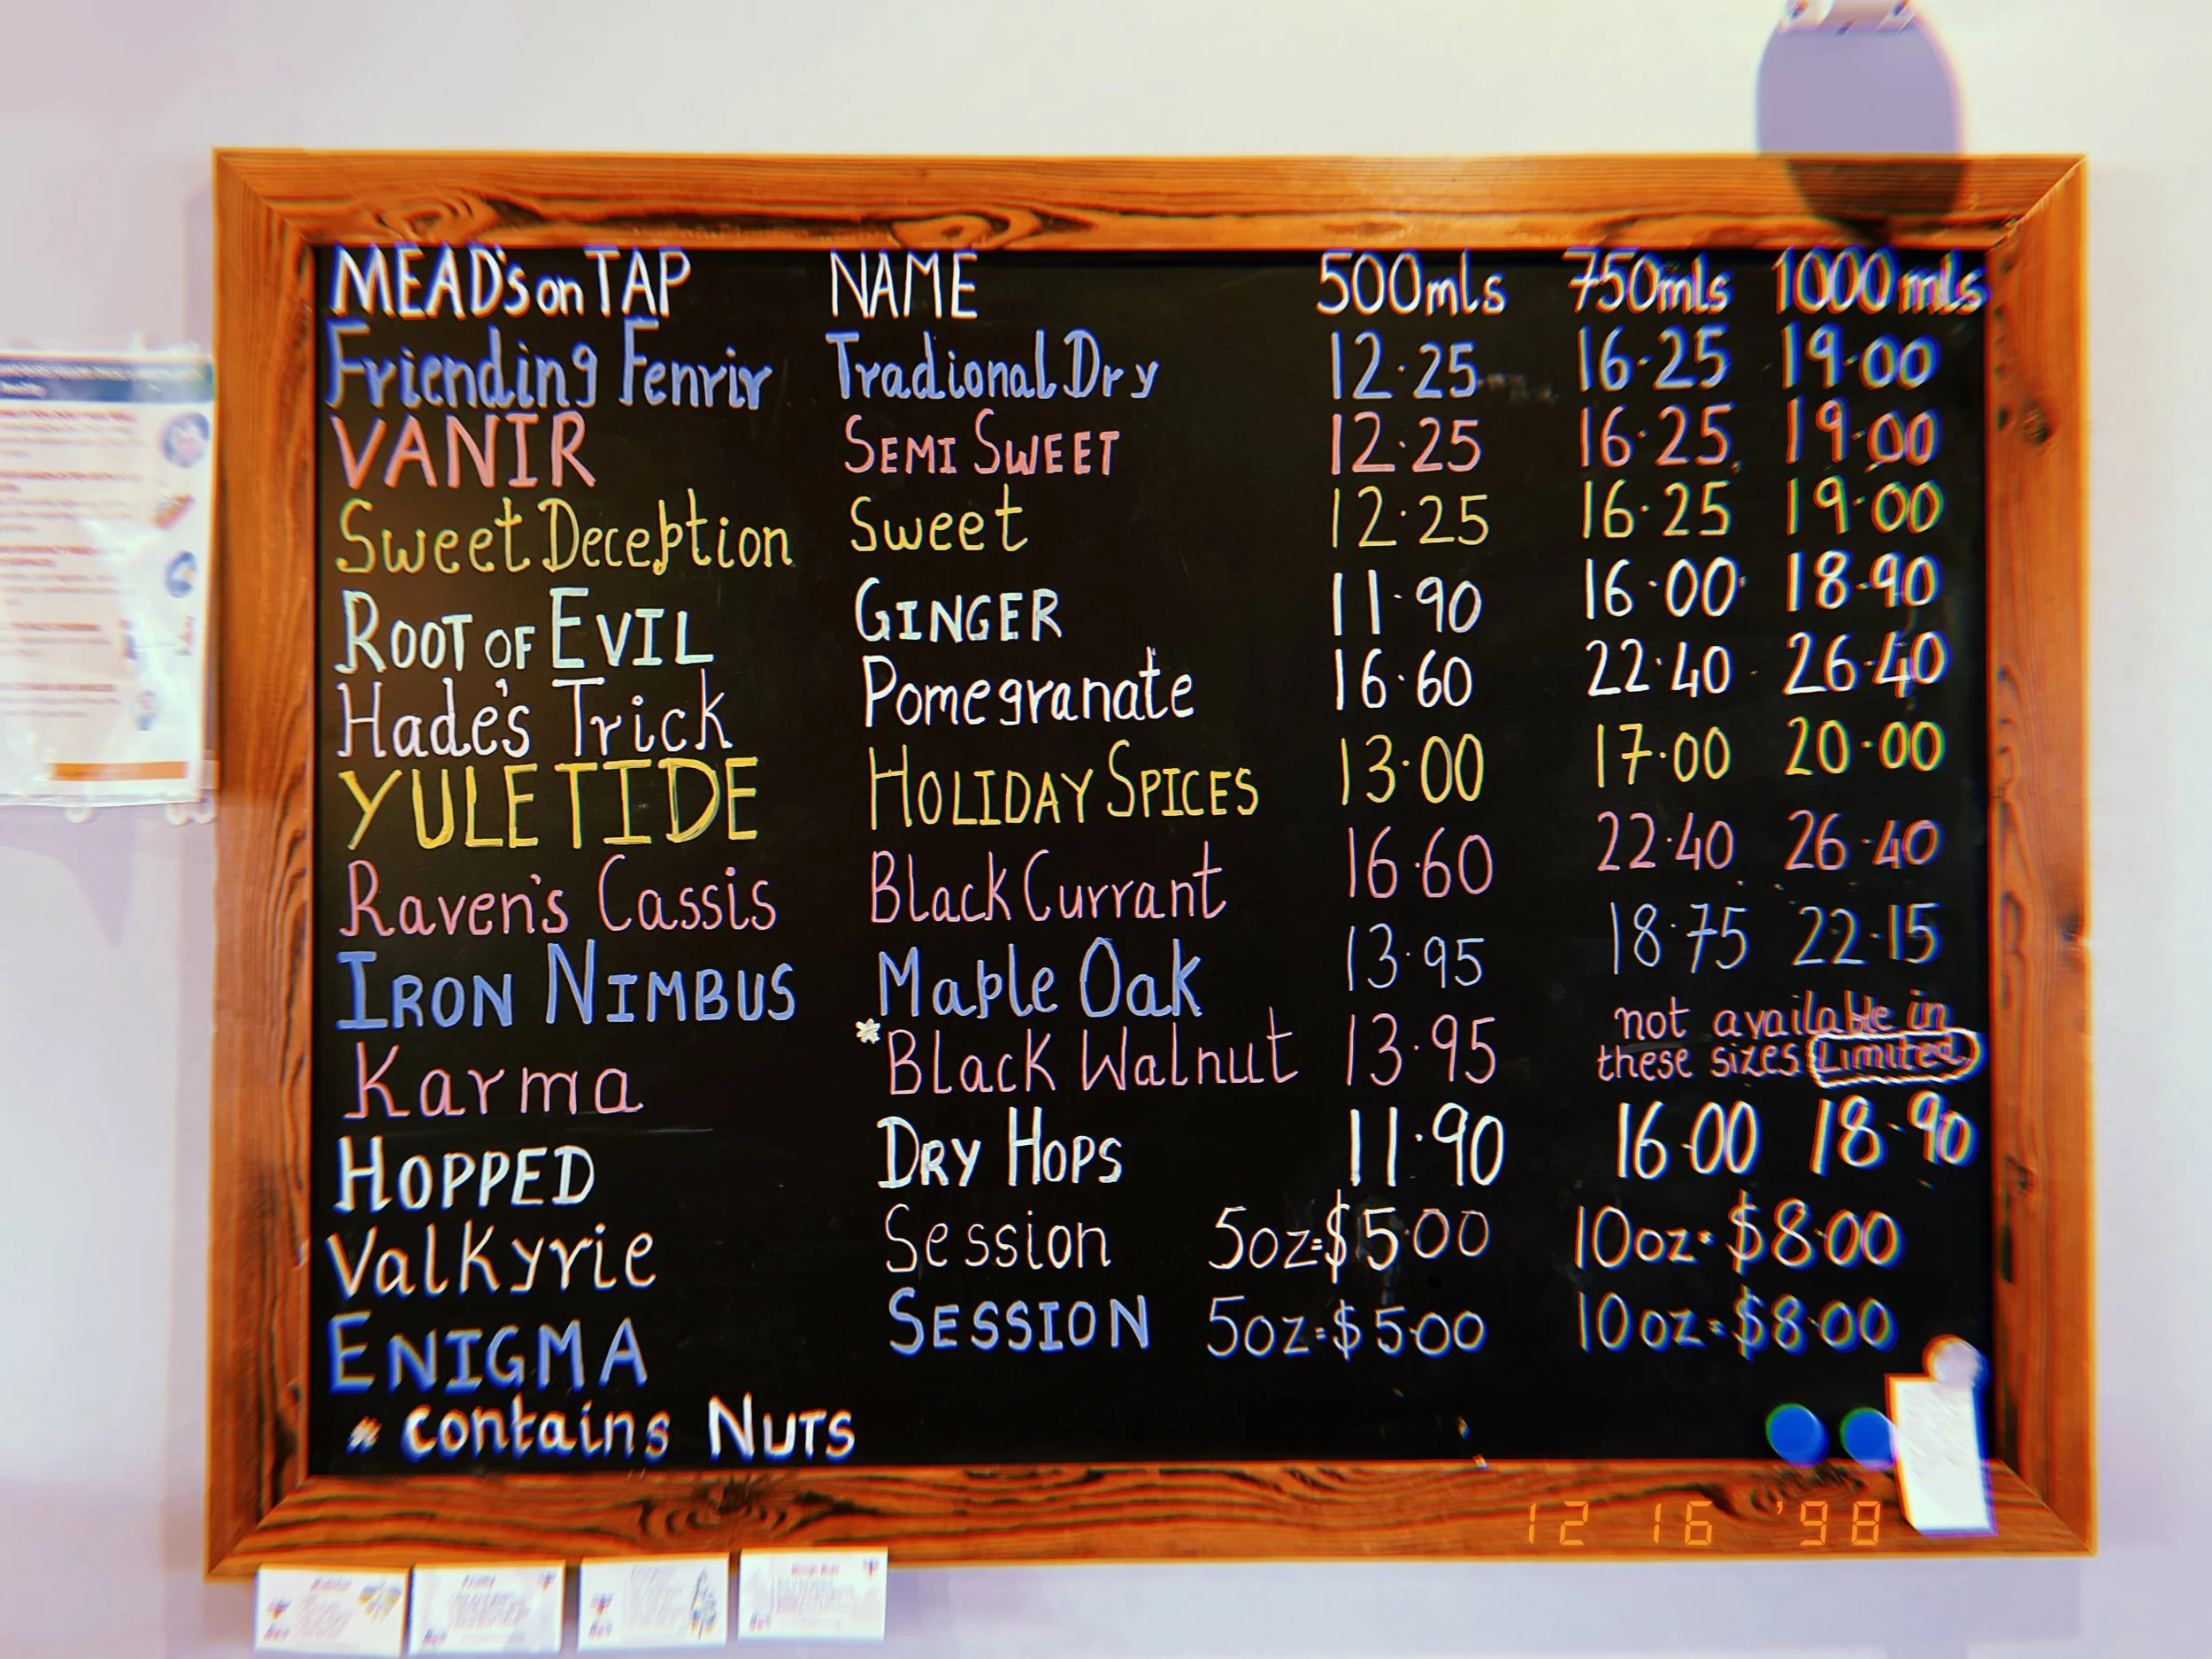 MEAD's on TAP NAME 500mls 750mls 1000mls
Friending Fenrir Tradional Dry 12.25 16.25 19.00
VANIR SEMI SWEET 12.25 16.25 19.00
Sweet Deception Sweet 12.25 16.25 19.00
ROOT OF EVIL GINGER 11.90 16.00 18.90
Hade's Trick Pomegranate 16.60 22.40 26.40
YULETIDE HOLIDAY SPICES 13.00 17.00 20.00
Raven's Cassis Black Currant 16.60 22.40 26.40
IRON NIMBUS Maple Oak 13.95 18.75 22.15
Karma *BLACK Walnut 13.95 not available in
these sizes Limited
HOPPED DRY HOPS 11.90 16.00 18.90
Valkyrie Session 5oz=$5.00 10oz=$8.00
ENIGMA SESSION 5oz=$5.00 10oz=$8.00
* contains NUTS
12 16 '98